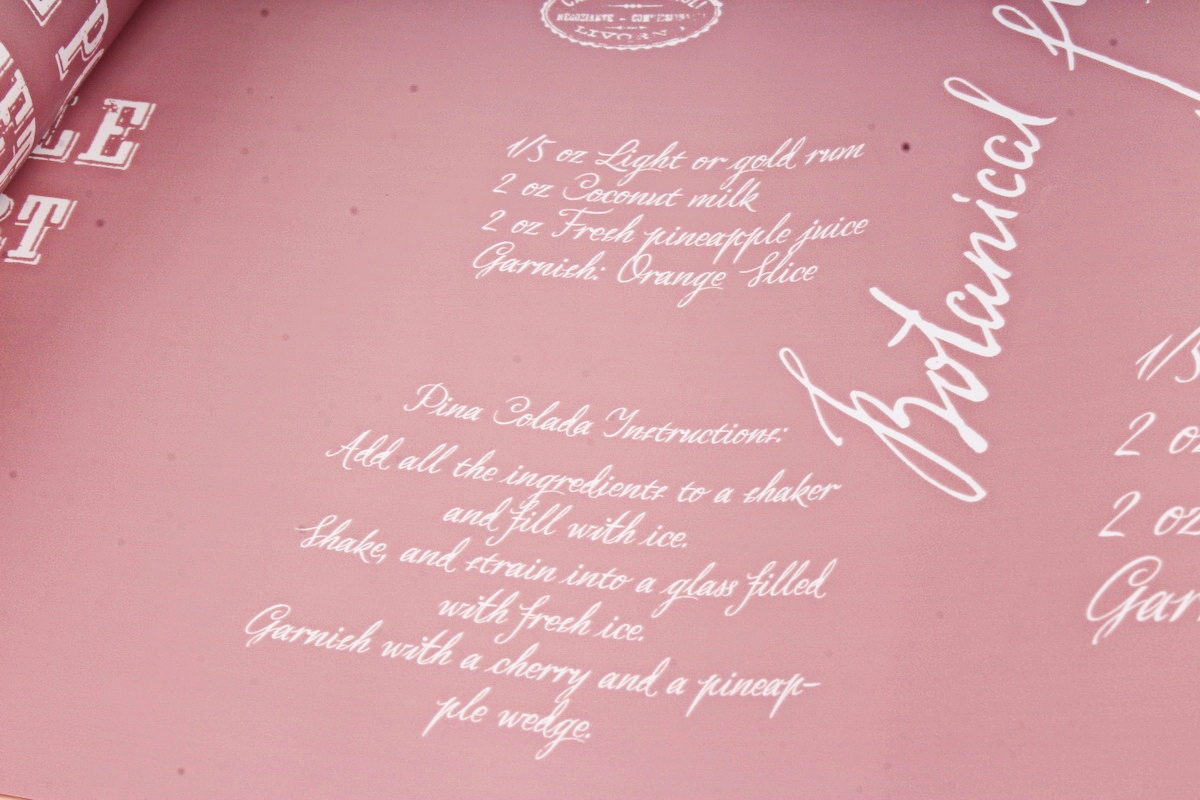 LIVORN
1/5 oz Light or gold rum
2 oz Coconut milk
2 oz Fresh pineapple juice
Garnish: Orange Slice
Botanical
Pina Colada Instructions:
Add all the ingredients to a shaker
and fill with ice.
Shake, and strain into a glass filled
with fresh ice.
Garnish with a cherry and a pineap-
ple wedge.
1/5
2 oz
2 oz
Gar